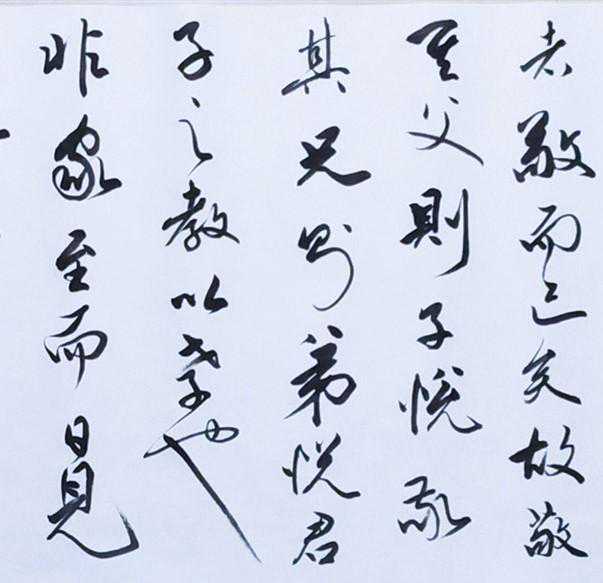 者敬而已矣故敬
其父則子悅敬
其兄則弟悅君
子之教以孝也
非家至而日見